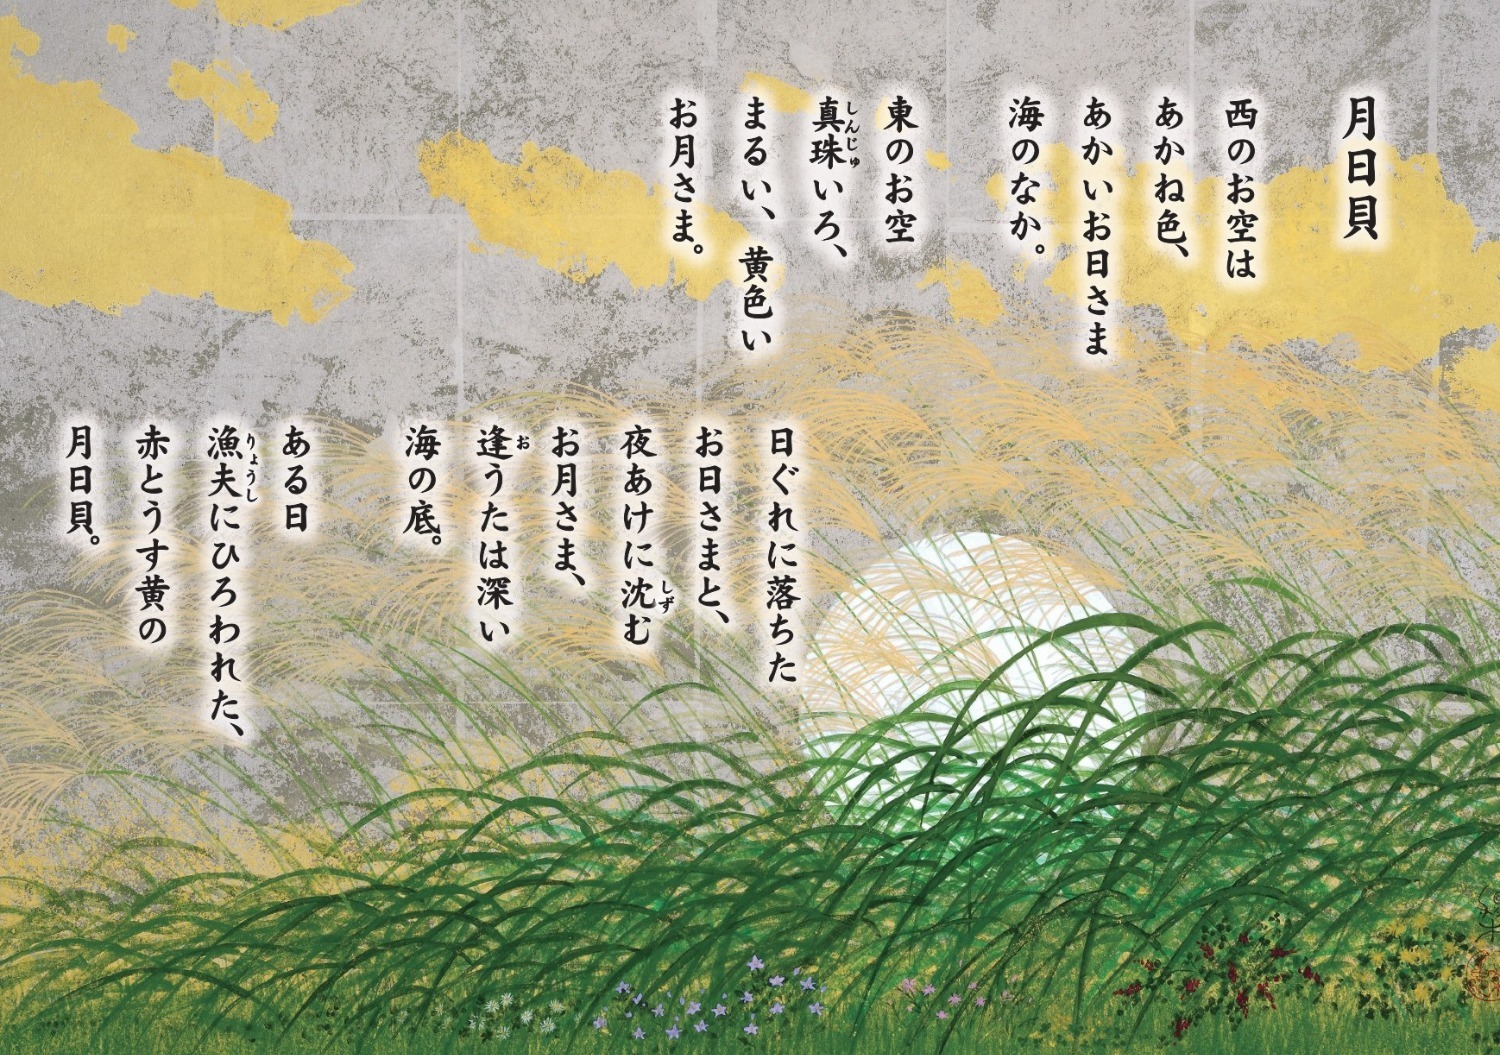 月日貝
西のお空は
あかね色、
あかいお日さま
海のなか。
東のお空
真珠いろ、
まるい、黄色い
お月さま。
日ぐれに落ちた
お日さまと、
夜あけに沈む
お月さま、
逢うたは深い
海の底。
ある日
漁夫にひろわれた、
赤とうす黄の
月日貝。